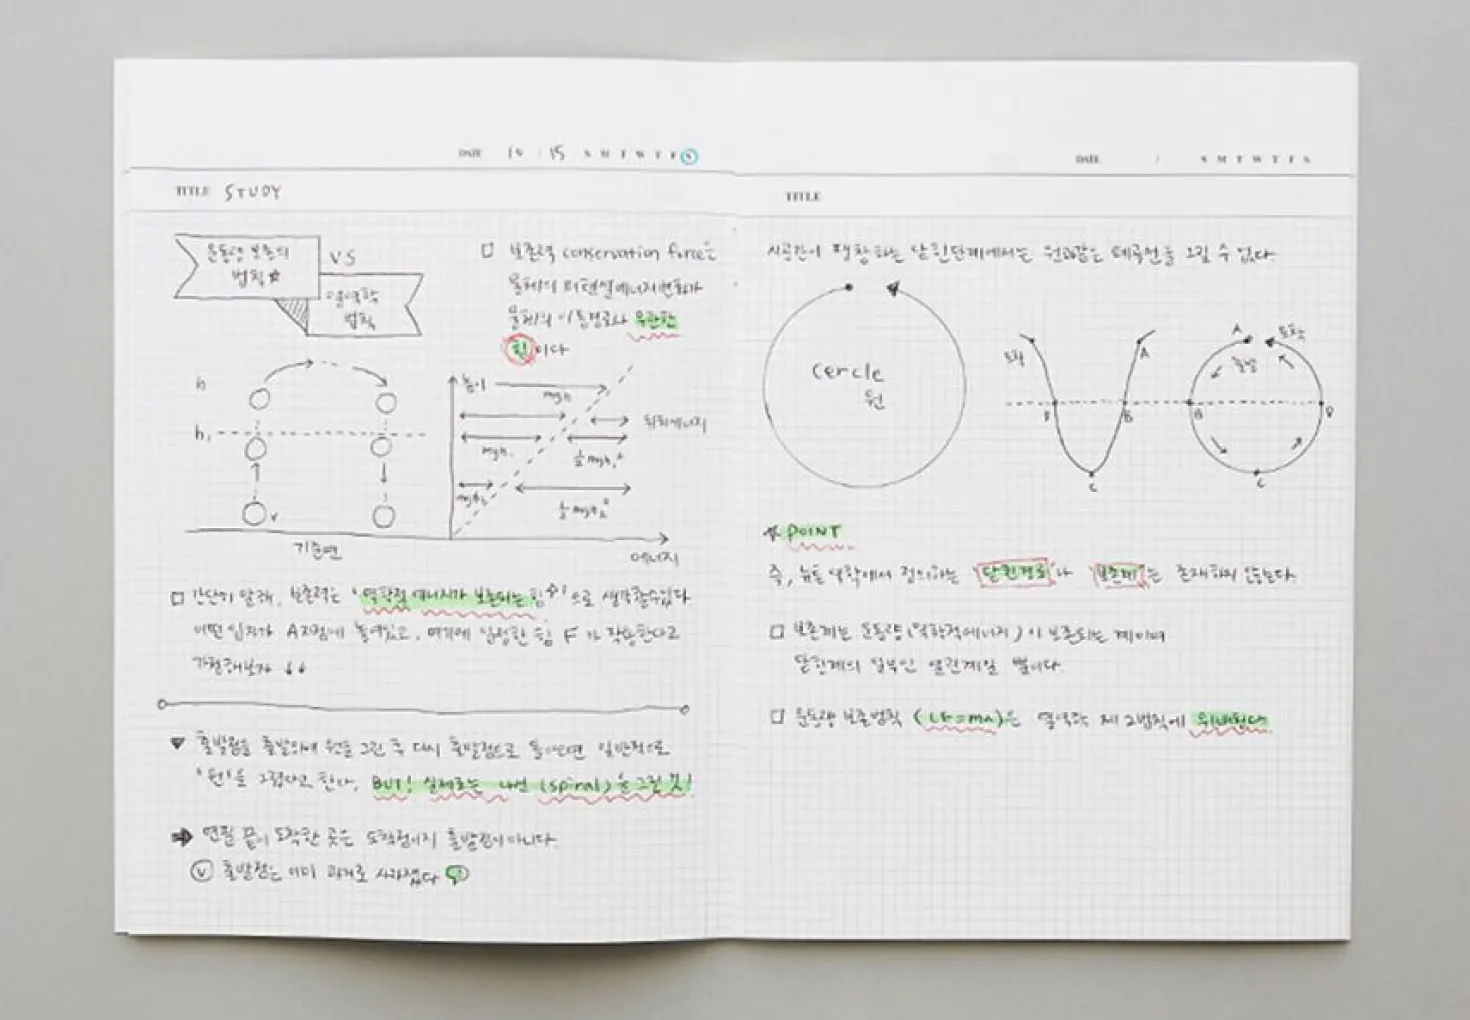 DATE 10 / 15 S M T W T F S
TITLE STUDY
운동량 보존의
법칙☆
VS
열역학
법칙
□ 보존력 conservation force는
물체의 퍼텐셜에너지변화가
물체의 이동경로와 무관한
힘이다
h
h₁
v
기준면
높이
mgh
위치에너지
mgh₁
에너지
□ 간단히 말해, 보존력은 "역학적 에너지가 보존되는 힘"으로 생각할수있다
어떤 입자가 A지점에 놓여있고, 여기에 일정한 힘 F가 작용한다고
가정해보자 ↓↓
▼ 출발점을 출발하여 원을 그린 후 다시 출발점으로 돌아오면 일반적으로
"원"을 그렸다고 한다, BUT! 실제로는 나선 (spiral)을 그린 것!
➡ 연필 끝이 도착한 곳은 도착점이지 출발점이 아니다.
ⓥ 출발점은 이미 과거로 사라졌다
DATE / S M T W T F S
TITLE
시공간이 팽창하는 닫힌단계에서는 원과같은 폐곡선을 그릴 수 없다.
cercle
원
도착
A
B
C
A
도착
출발
B
D
C
☆ POINT
즉, 뉴톤 역학에서 정의하는 "닫힌경로"나 "보존계"는 존재하지 않는다.
□ 보존계는 운동량(역학적에너지)이 보존되는 계이며
닫힌계의 일부인 열린계일 뿐이다.
□ 운동량 보존법칙 (F=MA)은 열역학 제 2법칙에 위배된다